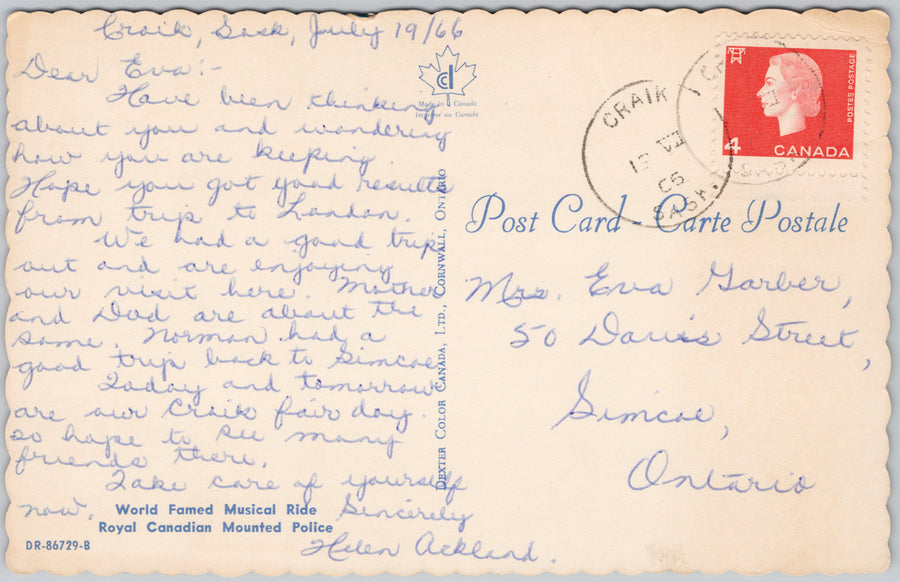 Craik, Sask, July 19/66
Dear Eva:-
Have been thinking
about you and wondering
how you are keeping.
Hope you got good results
from trip to London.
We had a good trip
out and are enjoying
our visit here. Mother
and Dad are about the
same. Norman had a
good trip back to Simcoe.
Today and tomorrow
are our Craik fair day.
so hope to see many
friends there.
Take care of yourself
now.
Sincerely
Helen Ackland.
World Famed Musical Ride
Royal Canadian Mounted Police
DR-86729-B
Made in Canada
Imprimé au Canada
DEXTER COLOR CANADA, LTD., CORNWALL, ONTARIO
CRAIK
SASK.
4
CANADA
POSTES POSTAGE
Post Card - Carte Postale
Mrs. Eva Garber,
50 Davis Street,
Simcoe,
Ontario